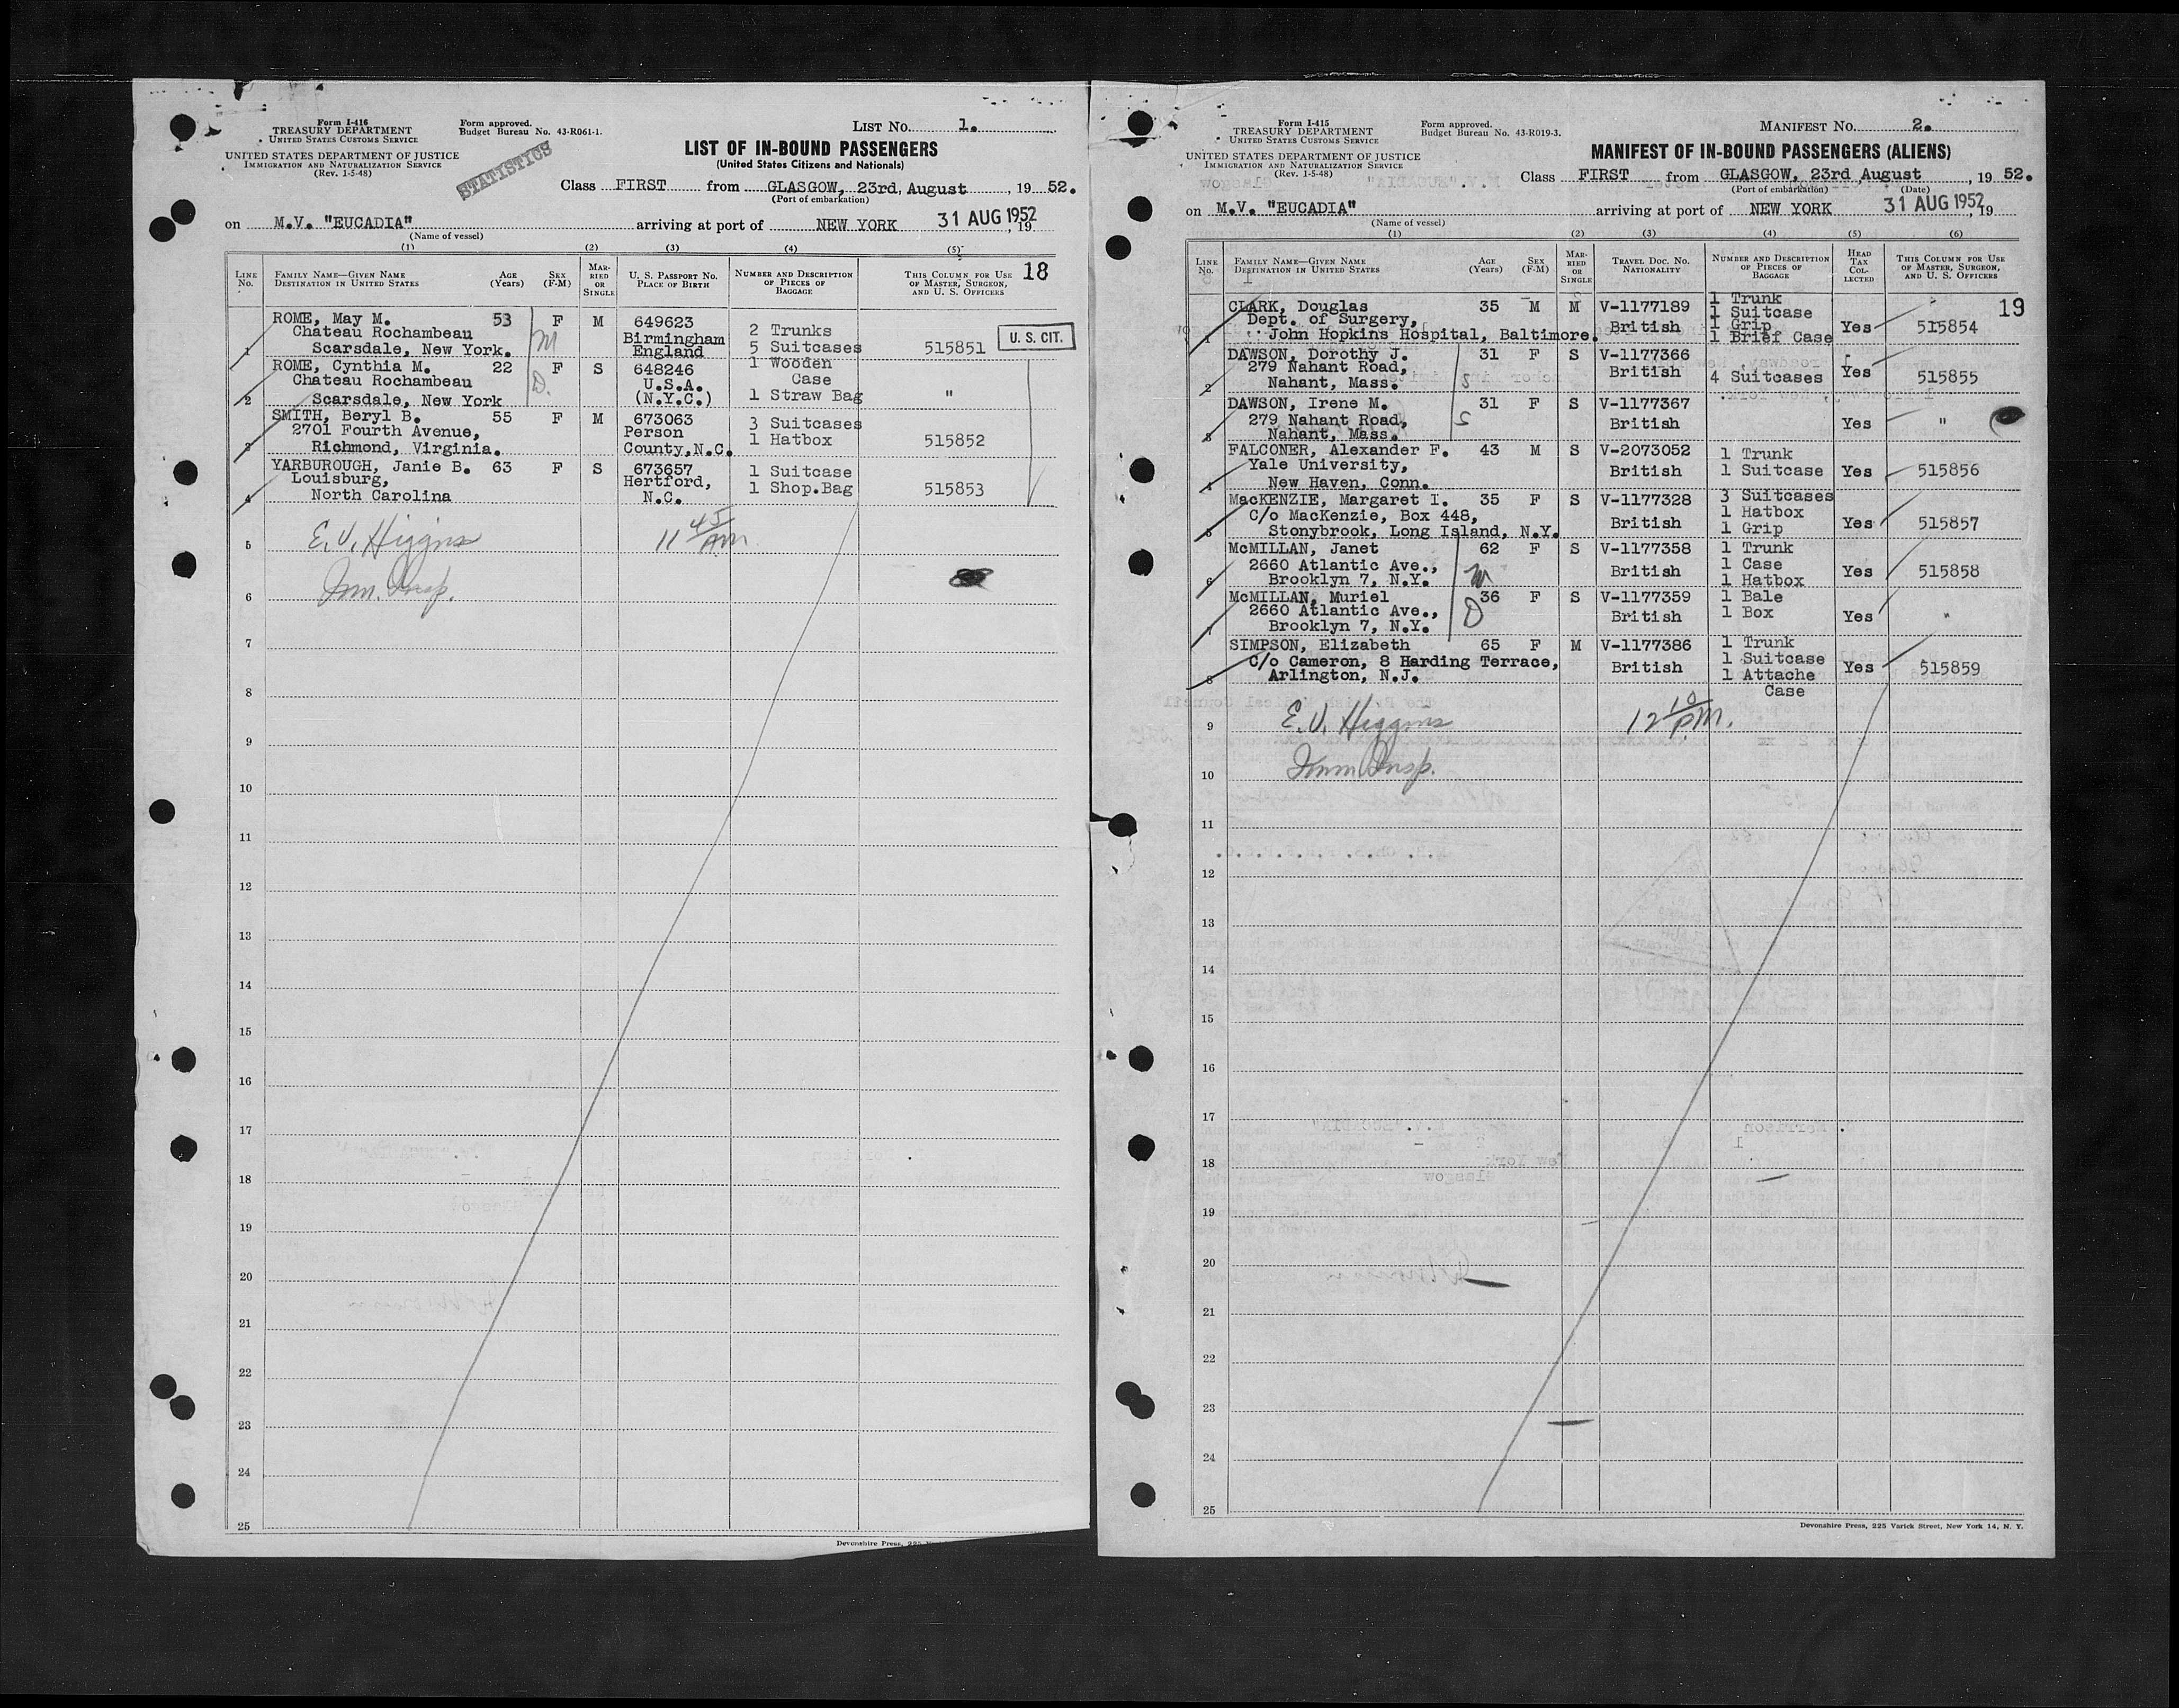 Form I-416
TREASURY DEPARTMENT
UNITED STATES CUSTOMS SERVICE
UNITED STATES DEPARTMENT OF JUSTICE
IMMIGRATION AND NATURALIZATION SERVICE
(Rev. 1-5-48)
Form approved.
Budget Bureau No. 43-R061-1.
STATISTICS
LIST No. 1.
LIST OF IN-BOUND PASSENGERS
(United States Citizens and Nationals)
Class FIRST from GLASGOW, 23rd, August, 1952.
(Port of embarkation)
on M.V. "EUCADIA" arriving at port of NEW YORK 31 AUG 1952, 19
(Name of vessel)
(1) (2) (3) (4) (5)
LINE No. FAMILY NAME—GIVEN NAME DESTINATION IN UNITED STATES AGE (Years) SEX (F-M) MARRIED OR SINGLE U. S. PASSPORT No. PLACE OF BIRTH NUMBER AND DESCRIPTION OF PIECES OF BAGGAGE THIS COLUMN FOR USE OF MASTER, SURGEON, AND U. S. OFFICERS 18
1 ROME, May M. 53 F M 649623
Chateau Rochambeau M Birmingham 2 Trunks
Scarsdale, New York. England 5 Suitcases 515851 U. S. CIT.
2 ROME, Cynthia M. 22 F S 648246 1 Wooden
Chateau Rochambeau D. U.S.A. Case
Scarsdale, New York (N.Y.C.) 1 Straw Bag "
3 SMITH, Beryl B. 55 F M 673063 3 Suitcases
2701 Fourth Avenue, Person 1 Hatbox 515852
Richmond, Virginia. County, N.C.
4 YARBUROUGH, Janie B. 63 F S 673657 1 Suitcase
Louisburg, Hertford, 1 Shop.Bag 515853
North Carolina N.C.
5 E.V. Higgins 11 45/AM
6 Imm. Insp.
7
8
9
10
11
12
13
14
15
16
17
18
19
20
21
22
23
24
25
Devonshire Press, 225
Form I-415
TREASURY DEPARTMENT
UNITED STATES CUSTOMS SERVICE
UNITED STATES DEPARTMENT OF JUSTICE
IMMIGRATION AND NATURALIZATION SERVICE
(Rev. 1-5-48)
Form approved.
Budget Bureau No. 43-R019-3.
MANIFEST No. 2.
MANIFEST OF IN-BOUND PASSENGERS (ALIENS)
Class FIRST from GLASGOW, 23rd August, 1952.
(Port of embarkation) (Date)
on M.V. "EUCADIA" arriving at port of NEW YORK 31 AUG 1952, 19
(Name of vessel)
(1) (2) (3) (4) (5) (6)
LINE No. FAMILY NAME—GIVEN NAME DESTINATION IN UNITED STATES AGE (Years) SEX (F-M) MARRIED OR SINGLE TRAVEL DOC. NO. NATIONALITY NUMBER AND DESCRIPTION OF PIECES OF BAGGAGE HEAD TAX COLLECTED THIS COLUMN FOR USE OF MASTER, SURGEON, AND U. S. OFFICERS
19
1 CLARK, Douglas 35 M M V-1177189 1 Trunk
Dept. of Surgery, British 1 Suitcase
1 Grip Yes 515854
John Hopkins Hospital, Baltimore. 1 Brief Case
2 DAWSON, Dorothy J. 31 F S V-1177366
279 Nahant Road, British Yes
Nahant, Mass. 4 Suitcases 515855
3 DAWSON, Irene M. 31 F S V-1177367
279 Nahant Road, British Yes "
Nahant, Mass.
4 FALCONER, Alexander F. 43 M S V-2073052 1 Trunk
Yale University, British 1 Suitcase Yes 515856
New Haven, Conn.
5 MacKENZIE, Margaret I. 35 F S V-1177328 3 Suitcases
C/o MacKenzie, Box 448, British 1 Hatbox Yes 515857
Stonybrook, Long Island, N.Y. 1 Grip
6 McMILLAN, Janet 62 F S V-1177358 1 Trunk
2660 Atlantic Ave., British 1 Case Yes 515858
Brooklyn 7, N.Y. M 1 Hatbox
7 McMILLAN, Muriel 36 F S V-1177359 1 Bale
2660 Atlantic Ave., D British 1 Box Yes "
Brooklyn 7, N.Y.
8 SIMPSON, Elizabeth 65 F M V-1177386 1 Trunk
C/o Cameron, 8 Harding Terrace, British 1 Suitcase Yes 515859
Arlington, N.J. 1 Attache
Case
9 E.V. Higgins 12 10/PM.
10 Imm Insp.
11
12
13
14
15
16
17
18
19
20
21
22
23
24
25
Devonshire Press, 225 Varick Street, New York 14, N. Y.